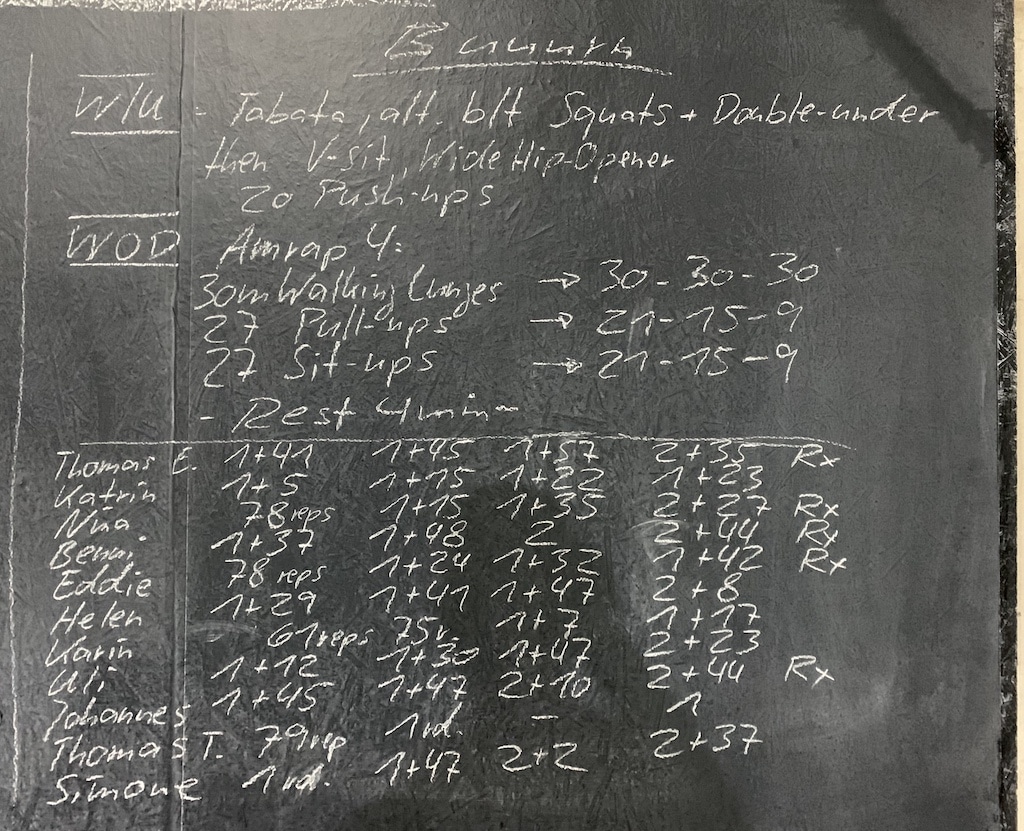 W/U - Tabata, alt. btt Squats + Double-under
then V-sit, Wide Hip-Opener
20 Push-ups
WOD Amrap 4:
30m Walking Lunges → 30-30-30
27 Pull-ups → 21-15-9
27 Sit-ups → 21-15-9
- Rest 4min -
Thomas E. 1+41 1+45 1+57 2+35 Rx
Katrin 1+5 1+15 1+22 1+23
Nina 78 reps 1+15 1+35 2+27 Rx
Benni 1+37 1+48 2 2+44 Rx
Eddie 78 reps 1+24 1+32 1+42 Rx
Helen 1+29 1+41 1+47 2+8
Karin 61 reps 75 r. 1+7 1+17
Uli 1+12 1+30 1+47 2+23
Johannes 1+45 1+47 2+10 2+44 Rx
Thomas T. 79 rep 1 rd. - 1
Simone 1 rd. 1+47 2+2 2+37